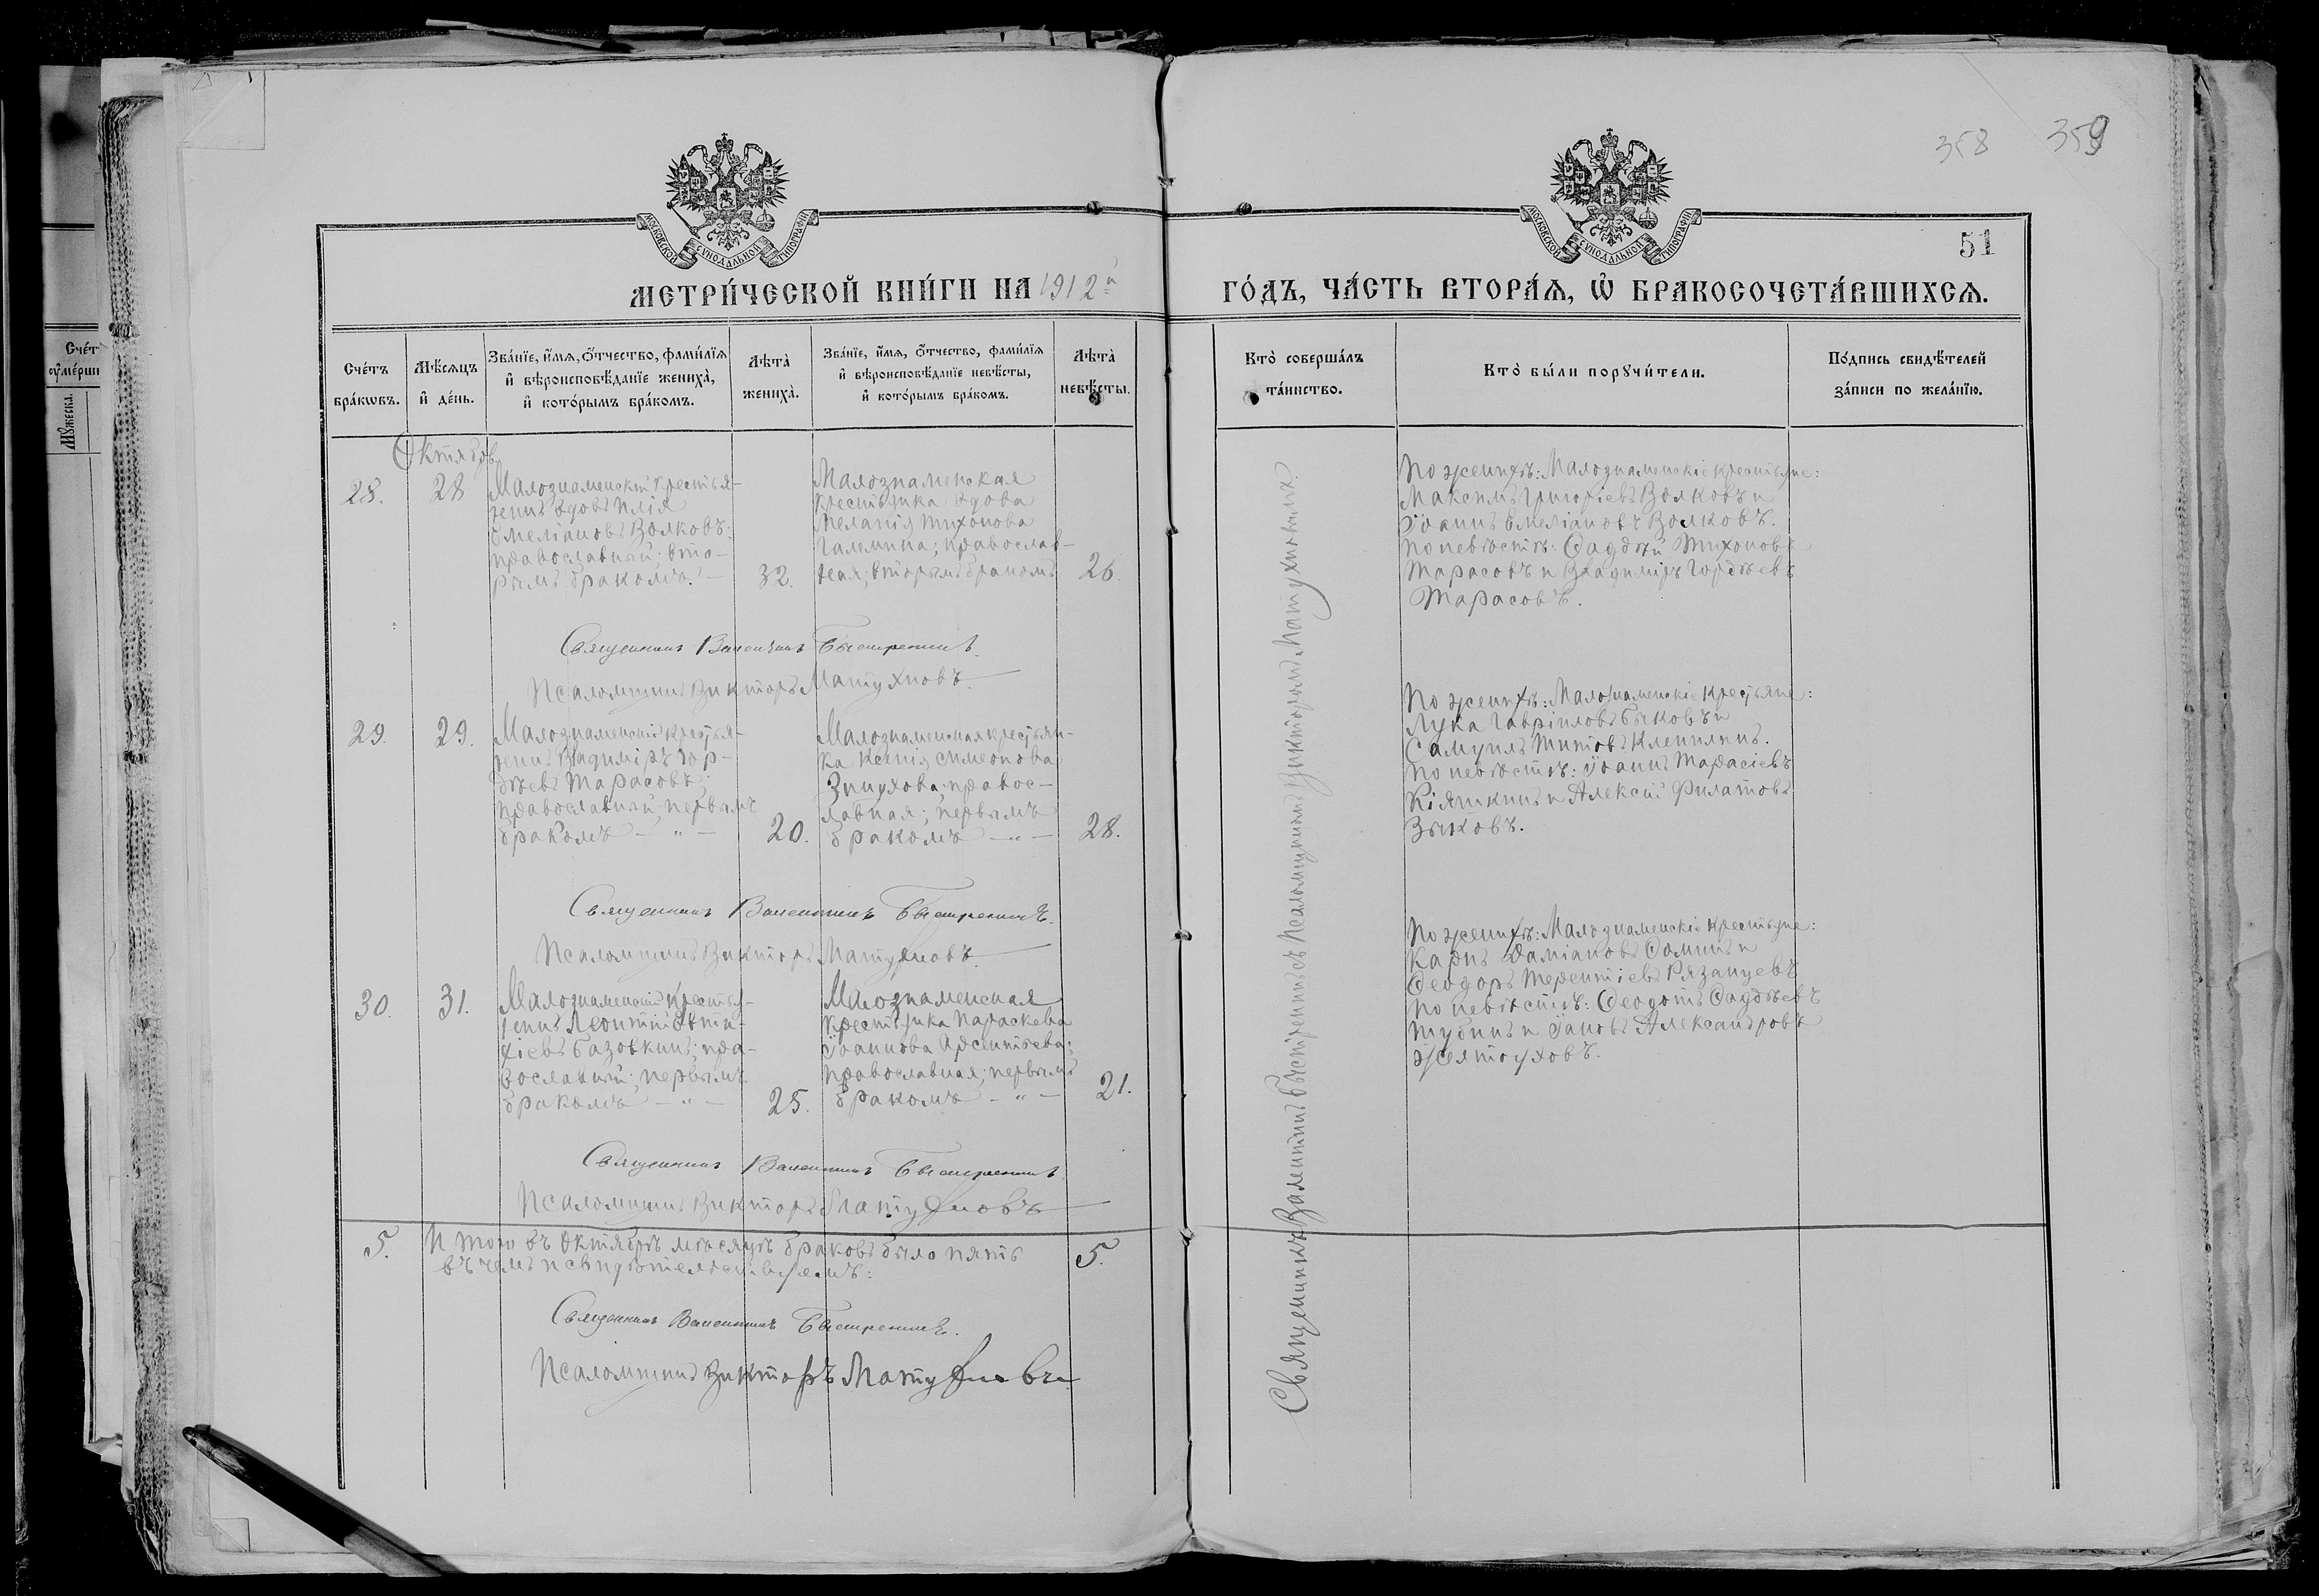 358 359
МОСКОВСКОЙ СУНОДАЛЬНОЙ ТИПОГРАФІИ
МОСКОВСКОЙ СУНОДАЛЬНОЙ ТИПОГРАФІИ
51
МЕТРИ́ЧЕСКОЙ КНИ́ГИ НА 1912й ГО́ДЪ, ЧА́СТЬ ВТОРА́Ѧ, Ѡ БРАКОСОЧЕТА́ВШИХСѦ.
Сче́тъ
бра́кѡвъ.
Мѣ́сѧцъ
и де́нь.
Зва́нїе, и́мѧ, о́тчество, фами́лїѧ
и вѣроисповѣ́данїе жениха̀,
и кото́рымъ бра́комъ.
Лѣта̀
жениха̀.
Зва́нїе, и́мѧ, о́тчество, фами́лїѧ
и вѣроисповѣ́данїе невѣ́сты,
и кото́рымъ бра́комъ.
Лѣта̀
невѣ́сты.
Кто̀ соверша́лъ
та́инство.
Кто̀ бы́ли порꙋчи́тели.
По́дпись свидѣ́телей
за́писи по жела́нїю.
Сче́т
Мꙋ́жеска.
Октябрь
28.
28
Малознаменскій крестья-
нинъ вдовъ Илія
Емеліановъ Волковъ;
православный; вто-
рымъ бракомъ. —
32.
Малознаменская
крестьянка вдова
Меланія Тихонова
Галемина; православ-
ная; вторымъ бракомъ
26.
По женихѣ: Малознаменскіе крестьяне:
Максимъ Григоріевъ Волковъ и
Іоаннъ Емеліановъ Волковъ.
По невѣстѣ: Фаддей Тихоновъ
Тарасовъ и Владиміръ Гордѣевъ
Тарасовъ.
Священникъ Валентинъ Быстренинъ.
Псаломщикъ Викторъ Матухновъ.
29.
29.
Малознаменскій крестья-
нинъ Владиміръ Гор-
дѣевъ Тарасовъ;
православный; первымъ
бракомъ — " —
20.
Малознаменская крестьян-
ка Ксенія Симеонова
православ-
лавная; первымъ
бракомъ — " —
28.
По женихѣ: Малознаменскіе крестьяне:
Лука Гавріиловъ Быковъ и
Самуилъ Титовъ Клепилинъ.
По невѣстѣ: Іоаннъ Тарасіевъ
Кіяшкинъ и Алексій Филатовъ
Зыковъ.
Священникъ Валентинъ Быстренинъ.
Псаломщикъ Викторъ Матухновъ.
30.
31.
Малознаменскій крестья-
нинъ Леонтій Евти-
хіевъ Базовкинъ; пра-
вославный; первымъ
бракомъ — " —
25.
Малознаменская
крестьянка Параскева
Іоаннова Арсентьева;
православная; первымъ
бракомъ — " —
21.
По женихѣ: Малознаменскіе крестьяне:
Карпъ Даміановъ Фоминъ и
Феодоръ Терентіевъ Рязанцевъ
По невѣстѣ: Феодотъ Фаддѣевъ
Тубинъ и Александровъ
Желтоуховъ.
Священникъ Валентинъ Быстренинъ.
Псаломщикъ Викторъ Матухновъ
Священникъ Валентинъ Быстренинъ съ Псаломщикомъ Викторомъ Матухновымъ.
5.
Итого въ Октябрѣ мѣсяцѣ браковъ было пять
5.
въ чемъ и свидѣтельствуемъ:
Священникъ Валентинъ Быстренинъ.
Псаломщикъ Викторъ Матухновъ